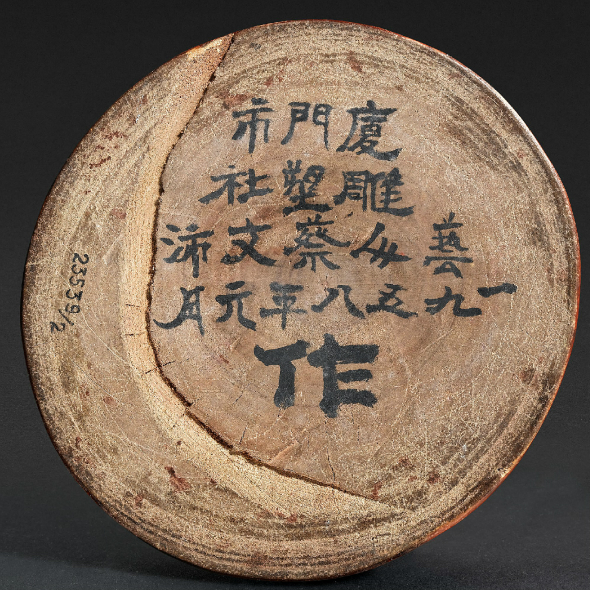 廈門市
雕塑社
藝人蔡文沛
一九五八年元月
作
23539/2